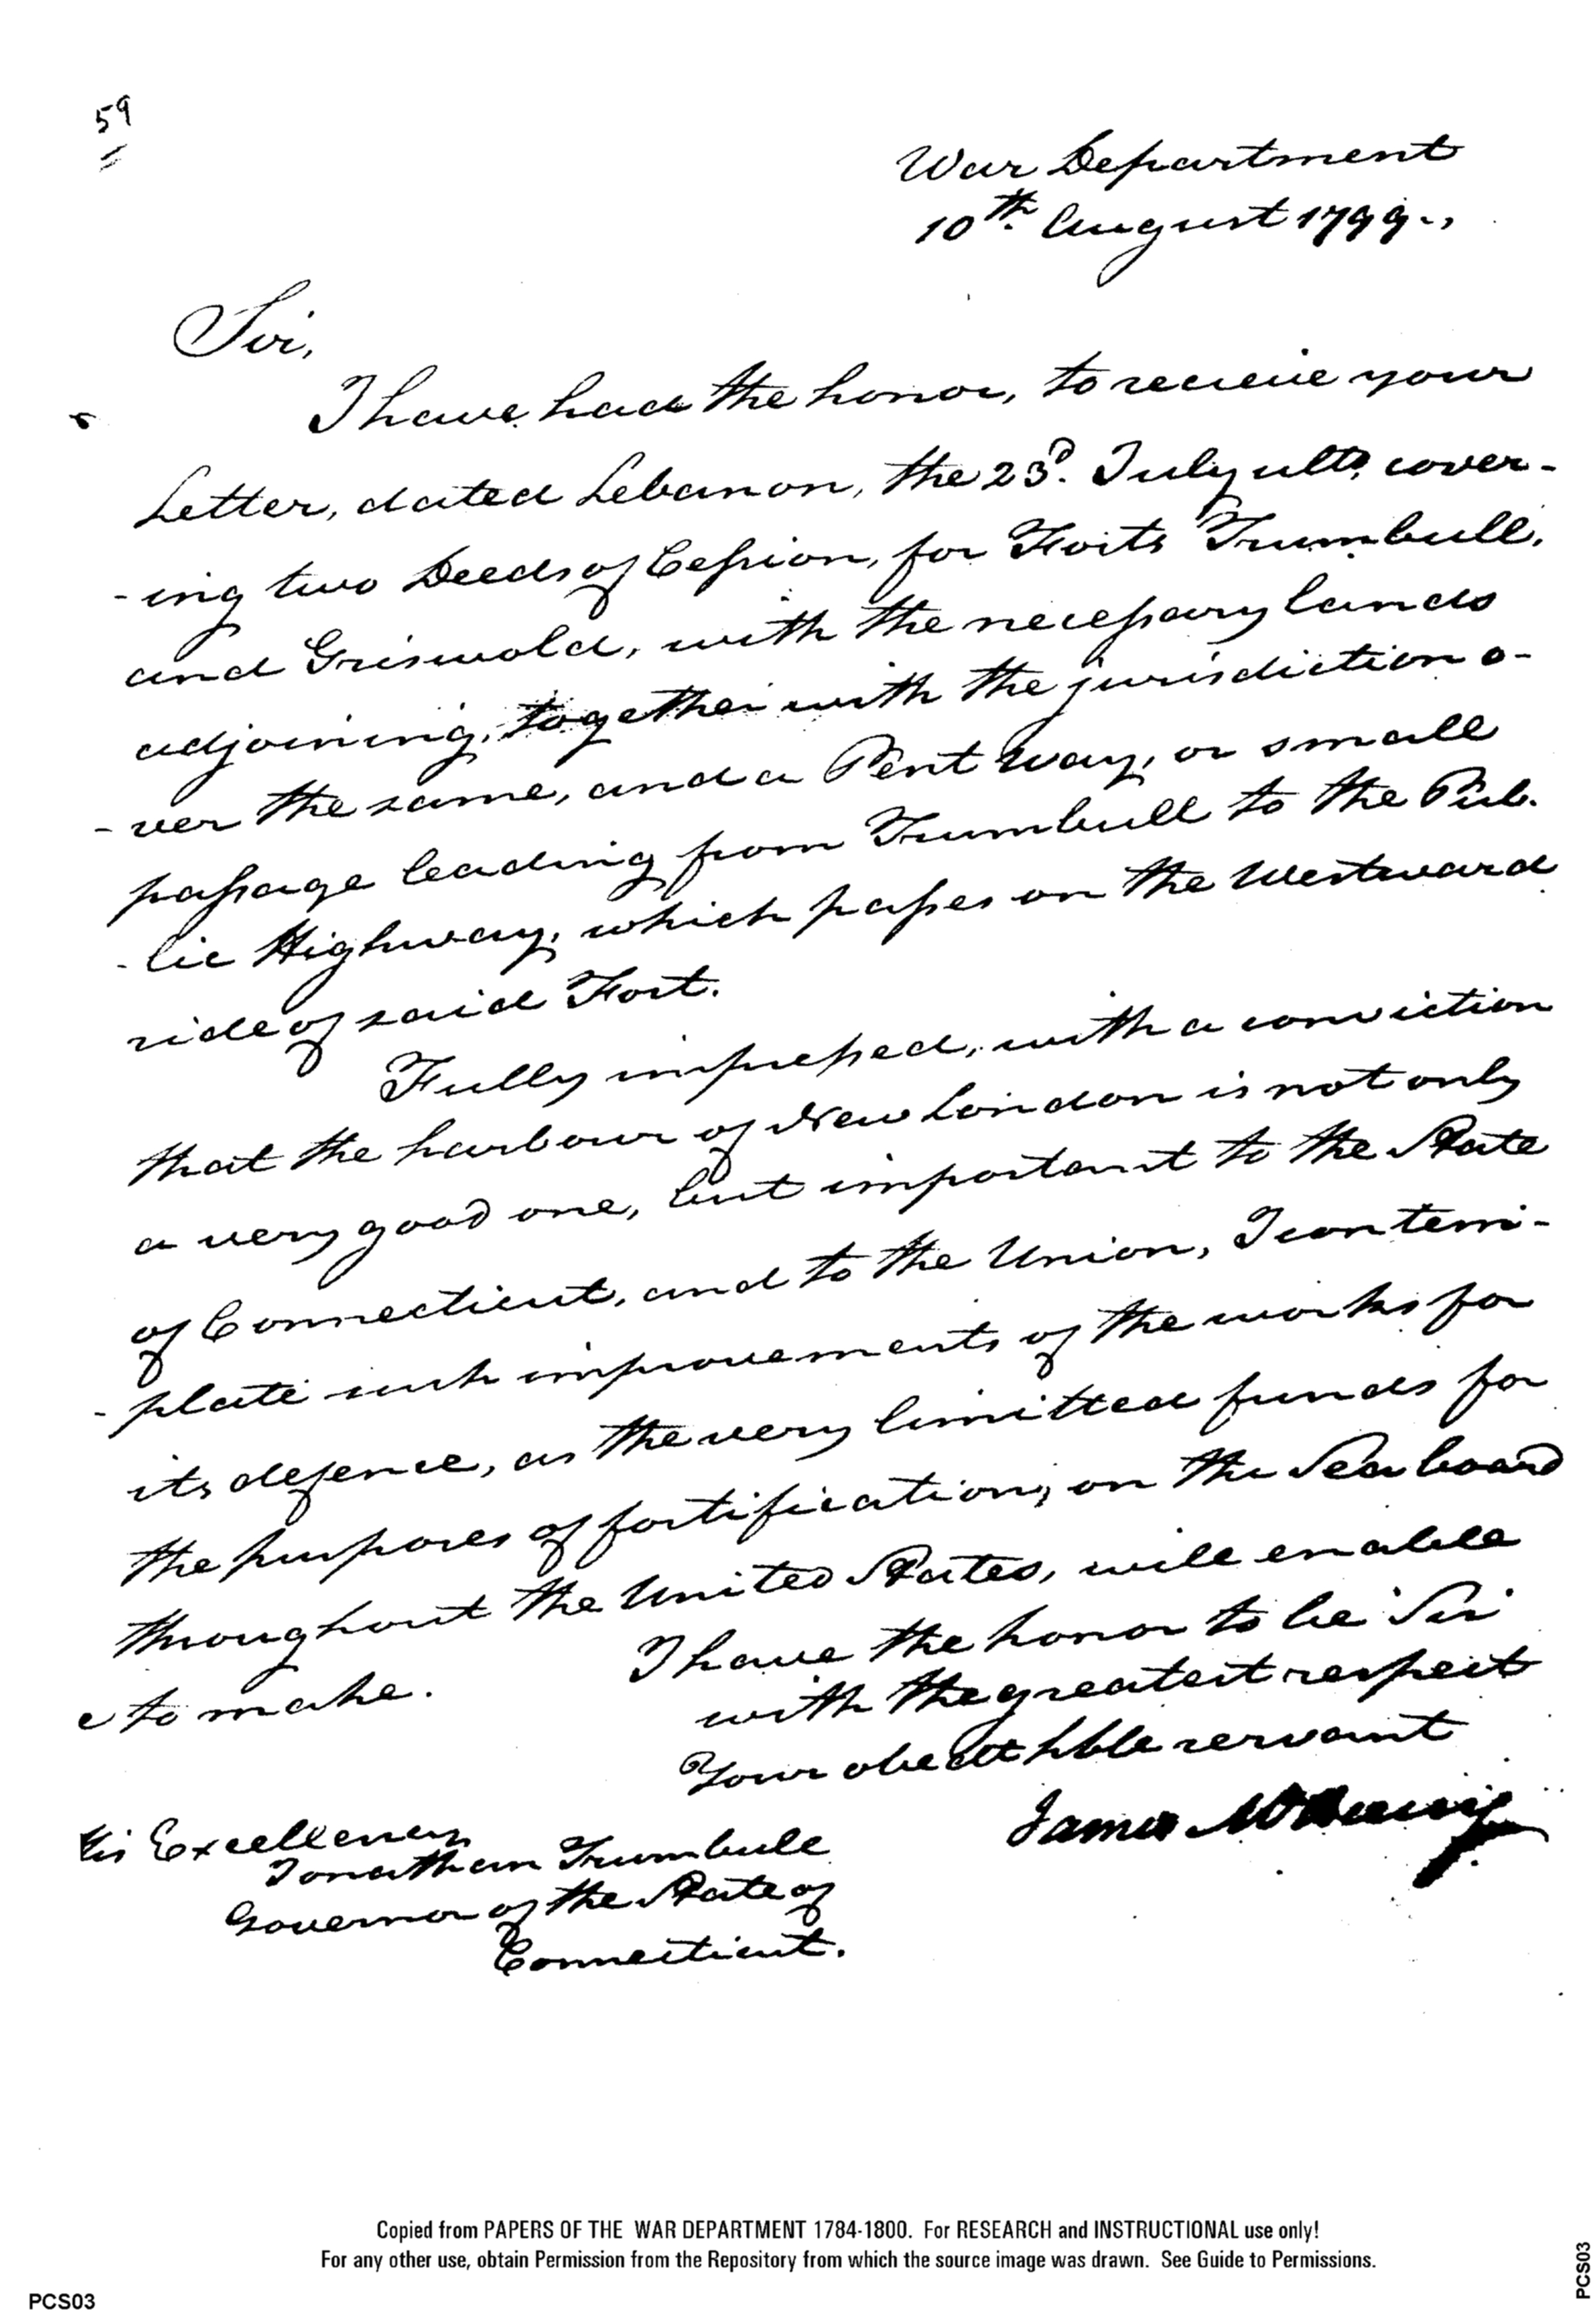 59
War Department
10th. August 1799.,
Sir,
I have had the honor, to receive your
Letter, dated Lebanon, the 23d. July ulto, cover-
-ing two Deeds of Cession, for Forts Trumbull,
and Griswold, with the necessary lands
adjoining, together with the jurisdiction o-
-ver the same, and a Pent way, or small
passage leading from Trumbull to the Pub-
-lic Highway, which passes on the Westward
side of said Fort.
Fully impressed, with a conviction
that the harbour of New London is not only
a very good one, but important to the State
of Connecticut, and to the Union, I contem-
-plate such improvements of the works for
its defence, as the very limitted funds for
the purposes of fortification, on the Sea board
throughout the United States, will enable
e to make.
I have the honor to be Sir
with the greatest respect
Your obedt hble servant
James McHenry
His Excellency
Jonathan Trumbull
Governor of the State of
Connecticut.
Copied from PAPERS OF THE WAR DEPARTMENT 1784-1800. For RESEARCH and INSTRUCTIONAL use only!
For any other use, obtain Permission from the Repository from which the source image was drawn. See Guide to Permissions.
PCS03
PCS03